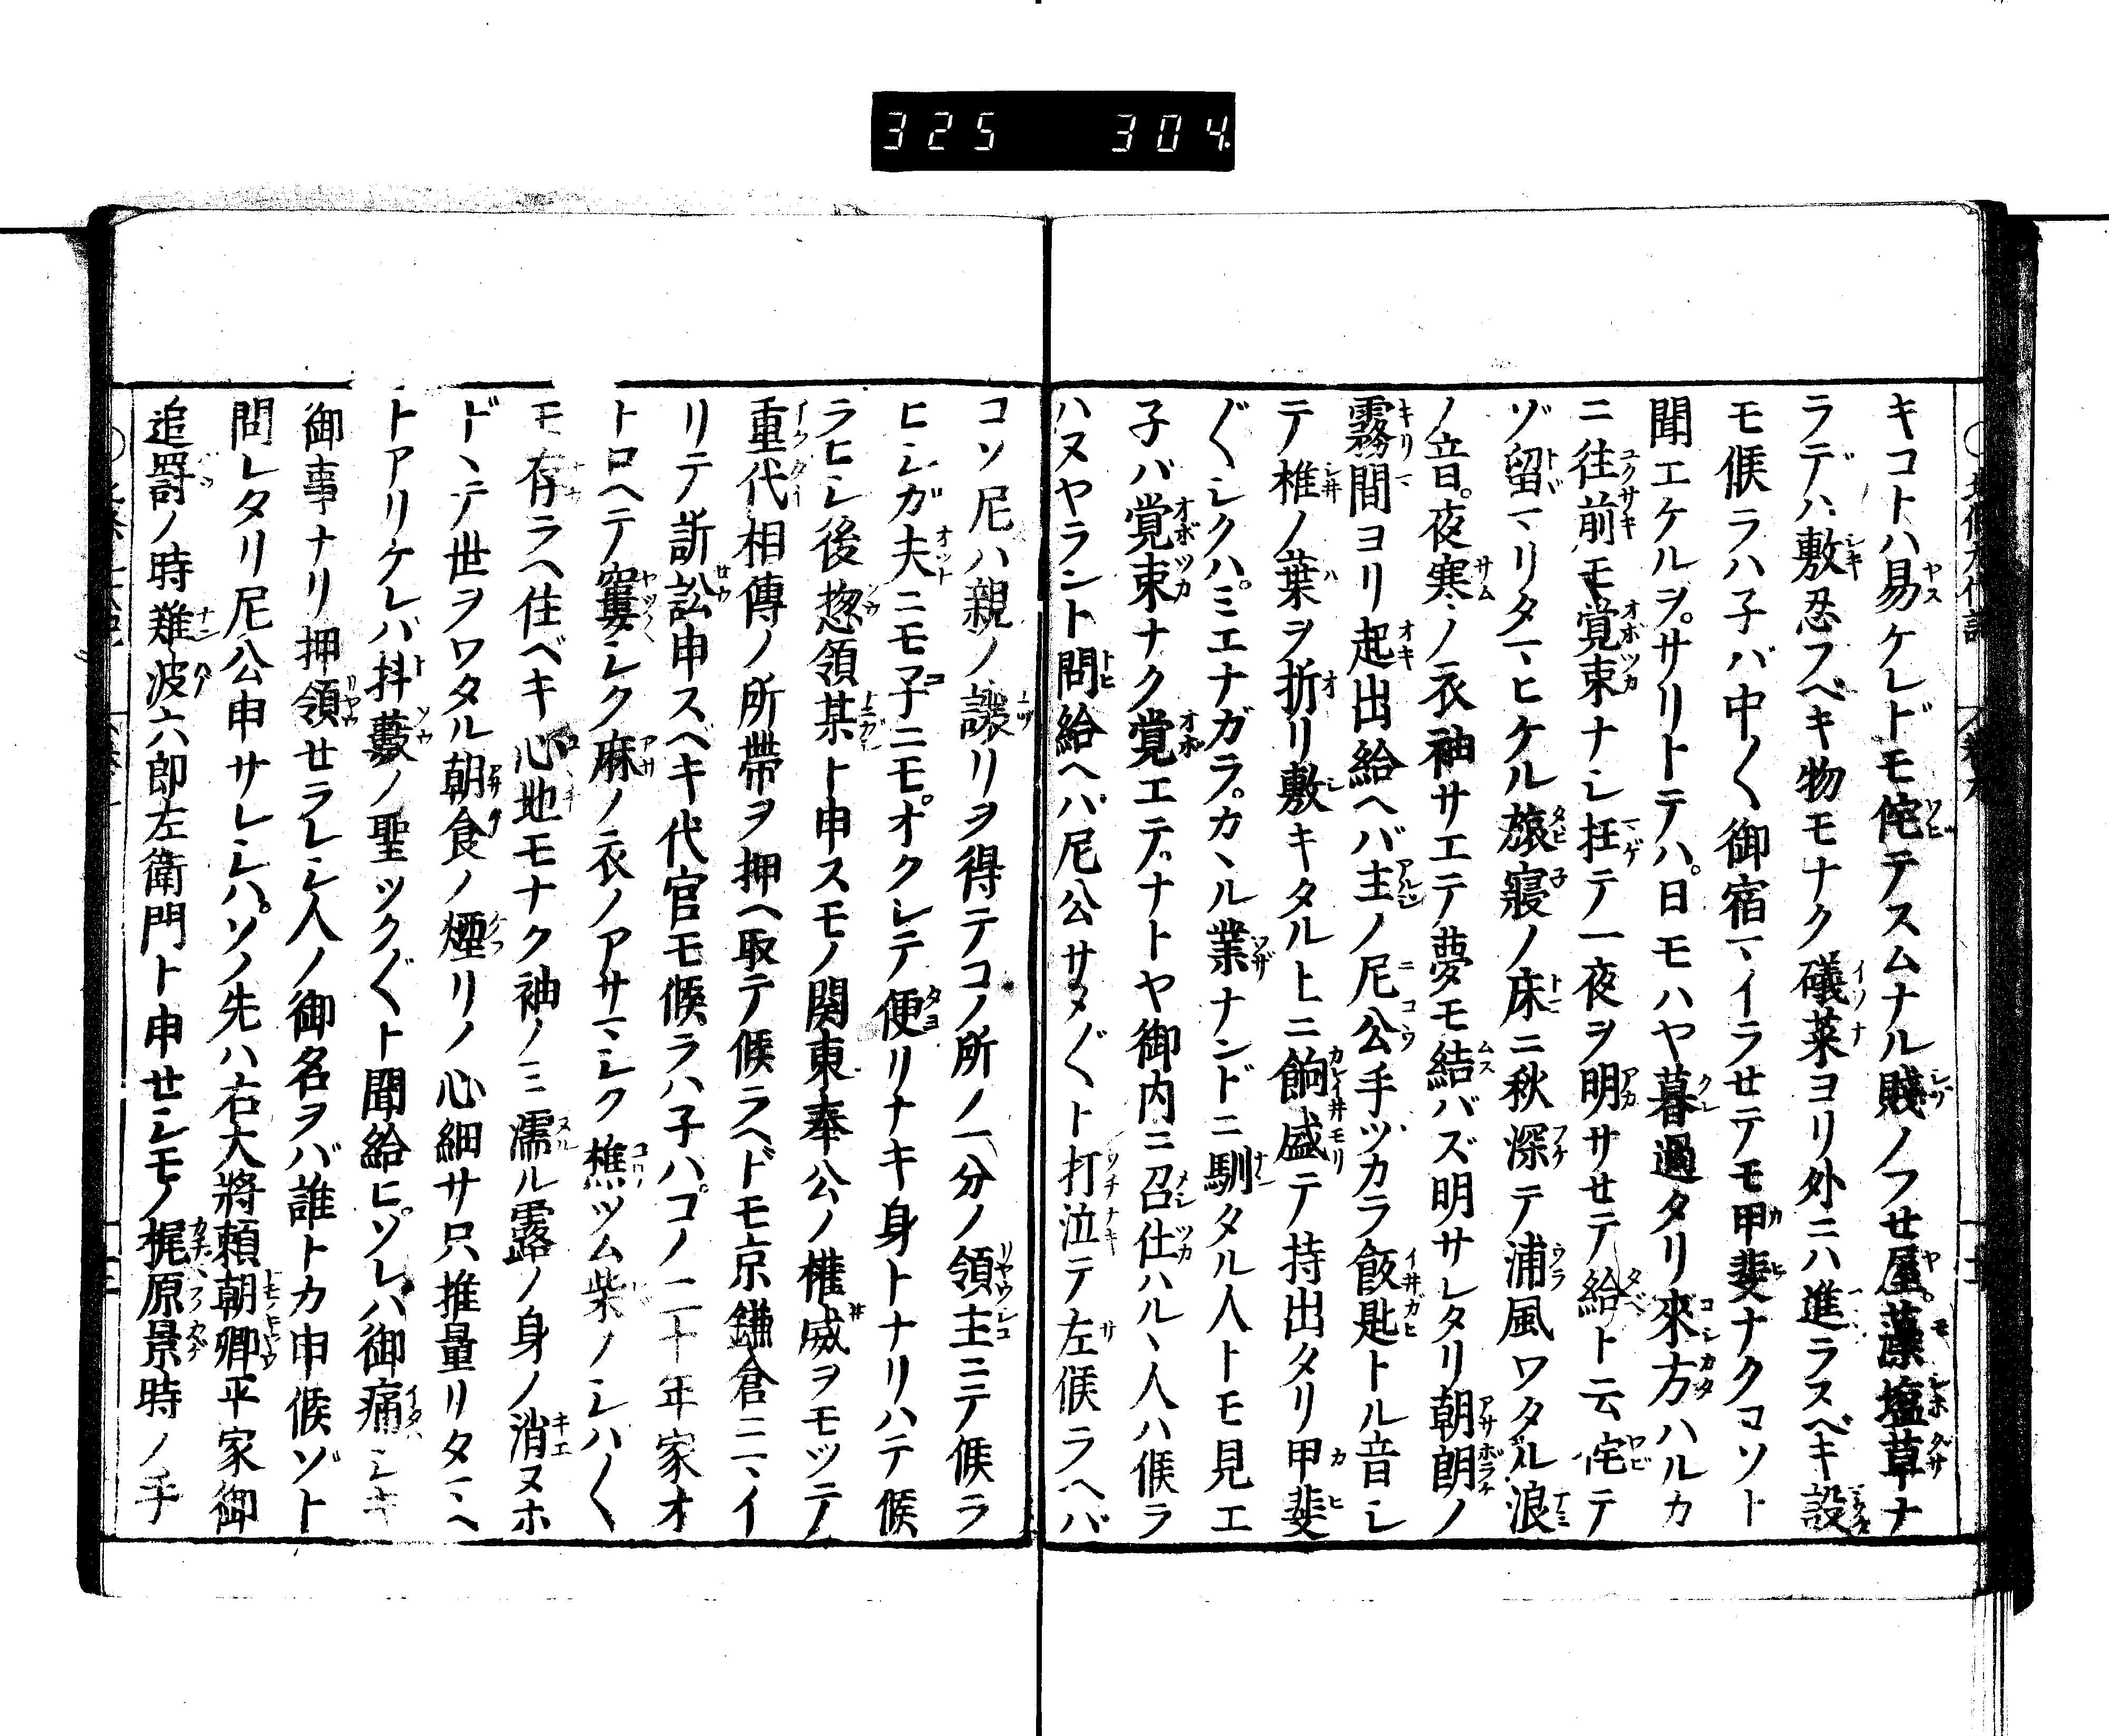 325 304
キコトハ易ケレドモ侘テスムナル賤ノフセ屋。藻塩草ナ
ラデハ敷忍フベキ物モナク礒菜ヨリ外ニハ進ラスベキ設
モ候ラハ子バ中〱御宿マイラセテモ甲斐ナクコソト
聞エケルヲ。サリトテハ。日モハヤ暮過タリ來方ハルカ
ニ往前モ覚束ナシ抂テ一夜ヲ明サセテ給ト云侘テ
ゾ留マリタマヒケル旅寢ノ床ニ秋深テ浦風ワタル浪
ノ音。夜寒ノ衣袖サエテ夢モ結バズ明サレタリ朝朗ノ
霧間ヨリ起出給ヘバ主ノ尼公手ヅカラ飯匙トル音シ
テ椎ノ葉ヲ折リ敷キタル上ニ餉盛テ持出タリ甲斐
〲シクハ。ミエナガラ。カヽル業ナンドニ馴タル人トモ見エ
子バ覚束ナク覚エテ。ナトヤ御内ニ召仕ハルヽ人ハ候ラ
ハヌヤラント問給ヘバ尼公サメ〲ト打泣テ左候ラヘバ
コソ尼ハ親ノ譲リヲ得テコノ所ノ一分ノ領主ニテ候ラ
ヒシガ夫ニモ子ニモ。オクレテ便リナキ身トナリハテ候
ラヒシ後惣領某ト申スモノ関東奉公ノ權威ヲモツテ
重代相傳ノ所帶ヲ押ヘ取テ候ラヘドモ京鎌倉ニマイ
リテ訴訟申スベキ代官モ候ラハ子ハ。コノ二十年家オ
トロヘテ窶シク麻ノ衣ノアサマシク樵ツム柴ノシハ〱
モ存ラヘ住ベキ心地モナク袖ノミ濡ル露ノ身ノ消ヌホ
ドヽテ世ヲワタル朝食ノ煙リノ心細サ只推量リタマヘ
トアリケレバ抖藪ノ聖ツク〲ト聞給ヒ。ソレハ御痛シキ
御事ナリ押領セラレシ人ノ御名ヲバ誰トカ申候ゾト
問レタリ尼公申サレシハ。ソノ先ハ右大將頼朝卿平家御
追罸ノ時難波六郎左衛門ト申セシモノ梶原景時ノ手